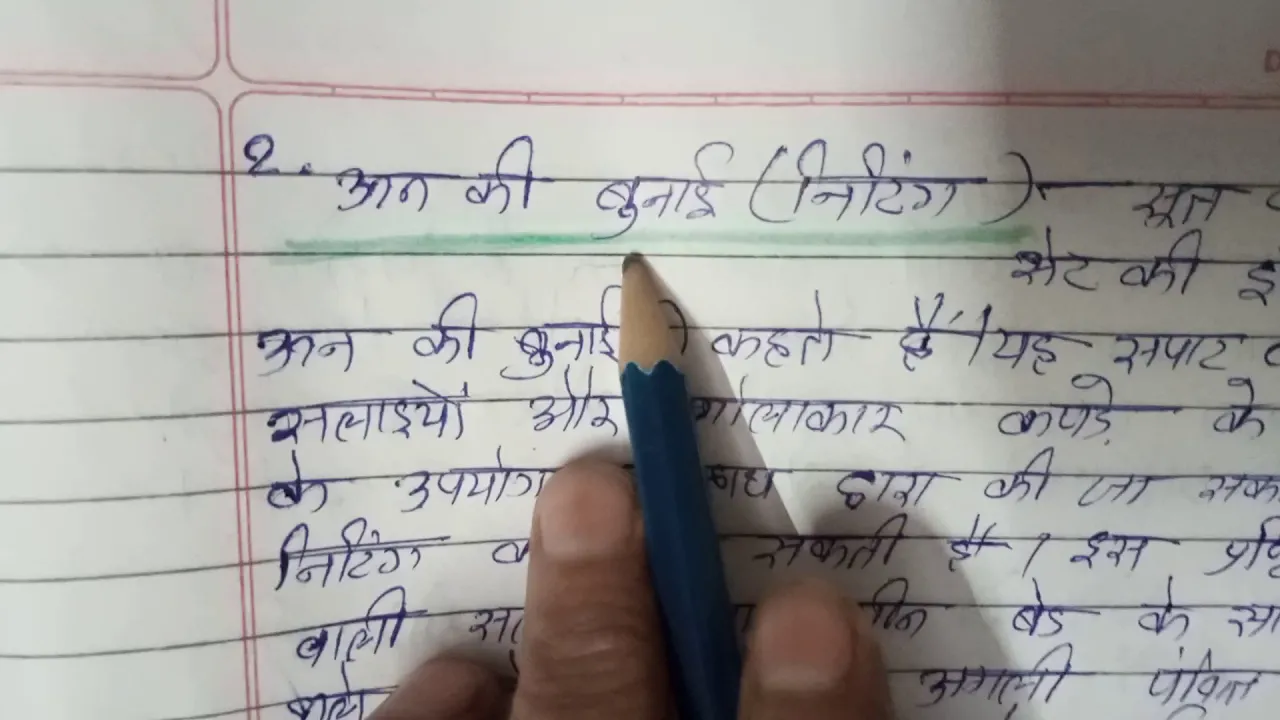 2. ऊन की बुनाई (निटिंग) - सूत
सेट की
ऊन की बुनाई) कहते हैं। यह सपाट
सलाइयों और गोलाकार कपड़े के
के उपयोग द्वारा की जा सक
निटिंग सकती है। इस
वाली बेड के सा
वाले अगली पंक्ति